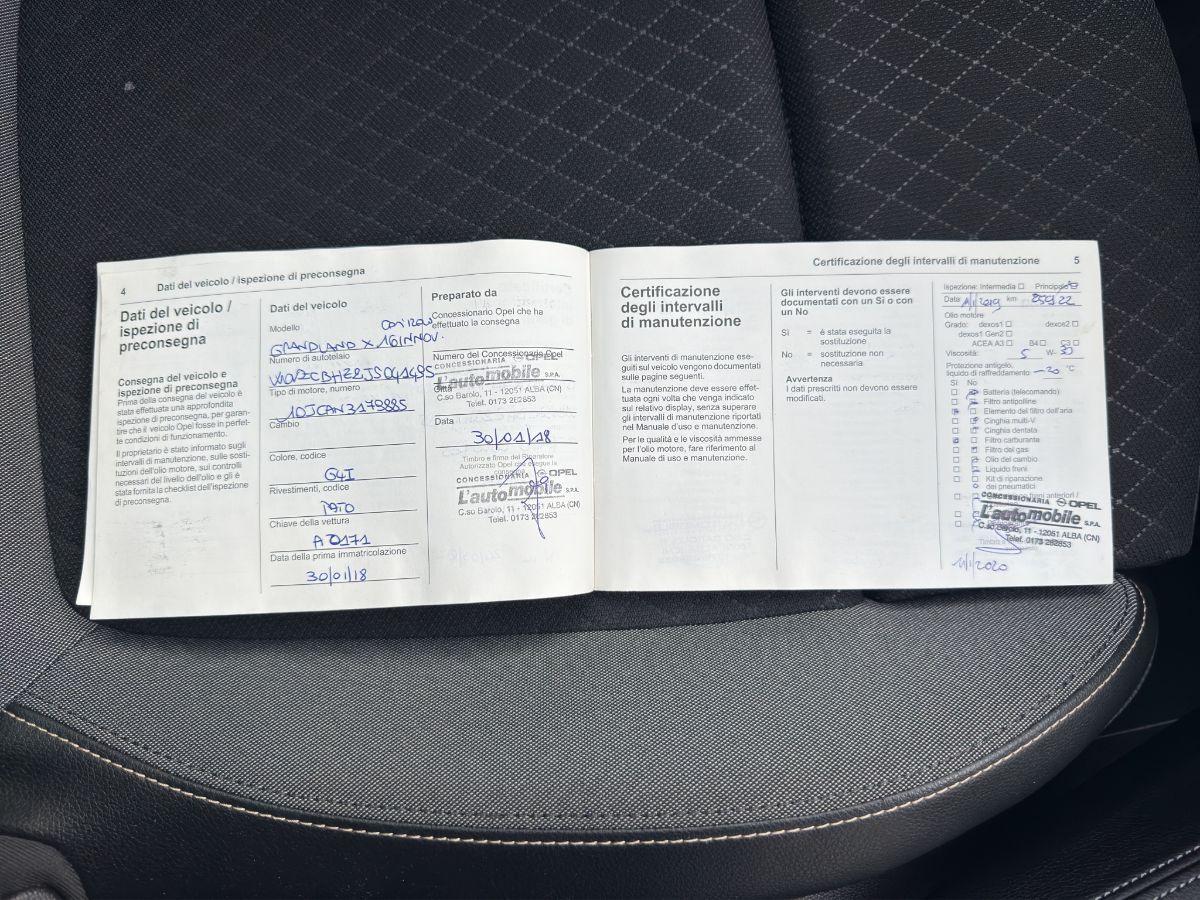 4 Dati del veicolo / ispezione di preconsegna
Dati del veicolo /
ispezione di
preconsegna
Consegna del veicolo e
ispezione di preconsegna
Prima della consegna del veicolo è
stata effettuata una approfondita
ispezione di preconsegna, per garan-
tire che il veicolo Opel fosse in perfet-
te condizioni di funzionamento.
Il proprietario è stato informato sugli
intervalli di manutenzione, sulle sosti-
tuzioni dell'olio motore, sui controlli
necessari del livello dell'olio e gli è
stata fornita la checklist dell'ispezione
di preconsegna.
Dati del veicolo
Modello
GRANDLAND X 16 INNOV.
Numero di autotelaio
Tipo di motore, numero
10JCAN3179885
Cambio
Colore, codice
G4I
Rivestimenti, codice
Chiave della vettura
A0171
Data della prima immatricolazione
30/01/18
Preparato da
Concessionario Opel che ha
effettuato la consegna
Numero del Concessionario Opel
CONCESSIONARIA OPEL
L'automobile S.P.A.
Città
C.so Barolo, 11 - 12051 ALBA (CN)
Telef. 0173 282853
Data
30/01/18
Timbro e firma del Riparatore
Autorizzato Opel che esegue la
consegna
CONCESSIONARIA OPEL
L'automobile S.P.A.
C.so Barolo, 11 - 12051 ALBA (CN)
Telef. 0173 282853
Certificazione degli intervalli di manutenzione 5
Certificazione
degli intervalli
di manutenzione
Gli interventi di manutenzione ese-
guiti sul veicolo vengono documentati
sulle pagine seguenti.
La manutenzione deve essere effet-
tuata ogni volta che venga indicato
sul relativo display, senza superare
gli intervalli di manutenzione riportati
nel Manuale d'uso e manutenzione.
Per le qualità e le viscosità ammesse
per l'olio motore, fare riferimento al
Manuale di uso e manutenzione.
Gli interventi devono essere
documentati con un Sì o con
un No
Sì = è stata eseguita la
sostituzione
No = sostituzione non
necessaria
Avvertenza
I dati prescritti non devono essere
modificati.
Ispezione: Intermedia Principale
Data 2019 km 25922
Olio motore
Grado: dexos1 dexos2
dexos1 Gen2
ACEA A3 B4 C3
Viscosità: 5 W- 30
Protezione antigelo,
liquido di raffreddamento -20 °C
Sì No
Batteria (telecomando)
Filtro antipolline
Elemento del filtro dell'aria
Cinghia multi-V
Cinghia dentata
Filtro carburante
Filtro del gas
Olio del cambio
Liquido freni
Kit di riparazione
dei pneumatici
freni anteriori /
CONCESSIONARIA OPEL
L'automobile S.P.A.
C.so Barolo, 11 - 12051 ALBA (CN)
Telef. 0173 282853
Timbro
1/1/2020